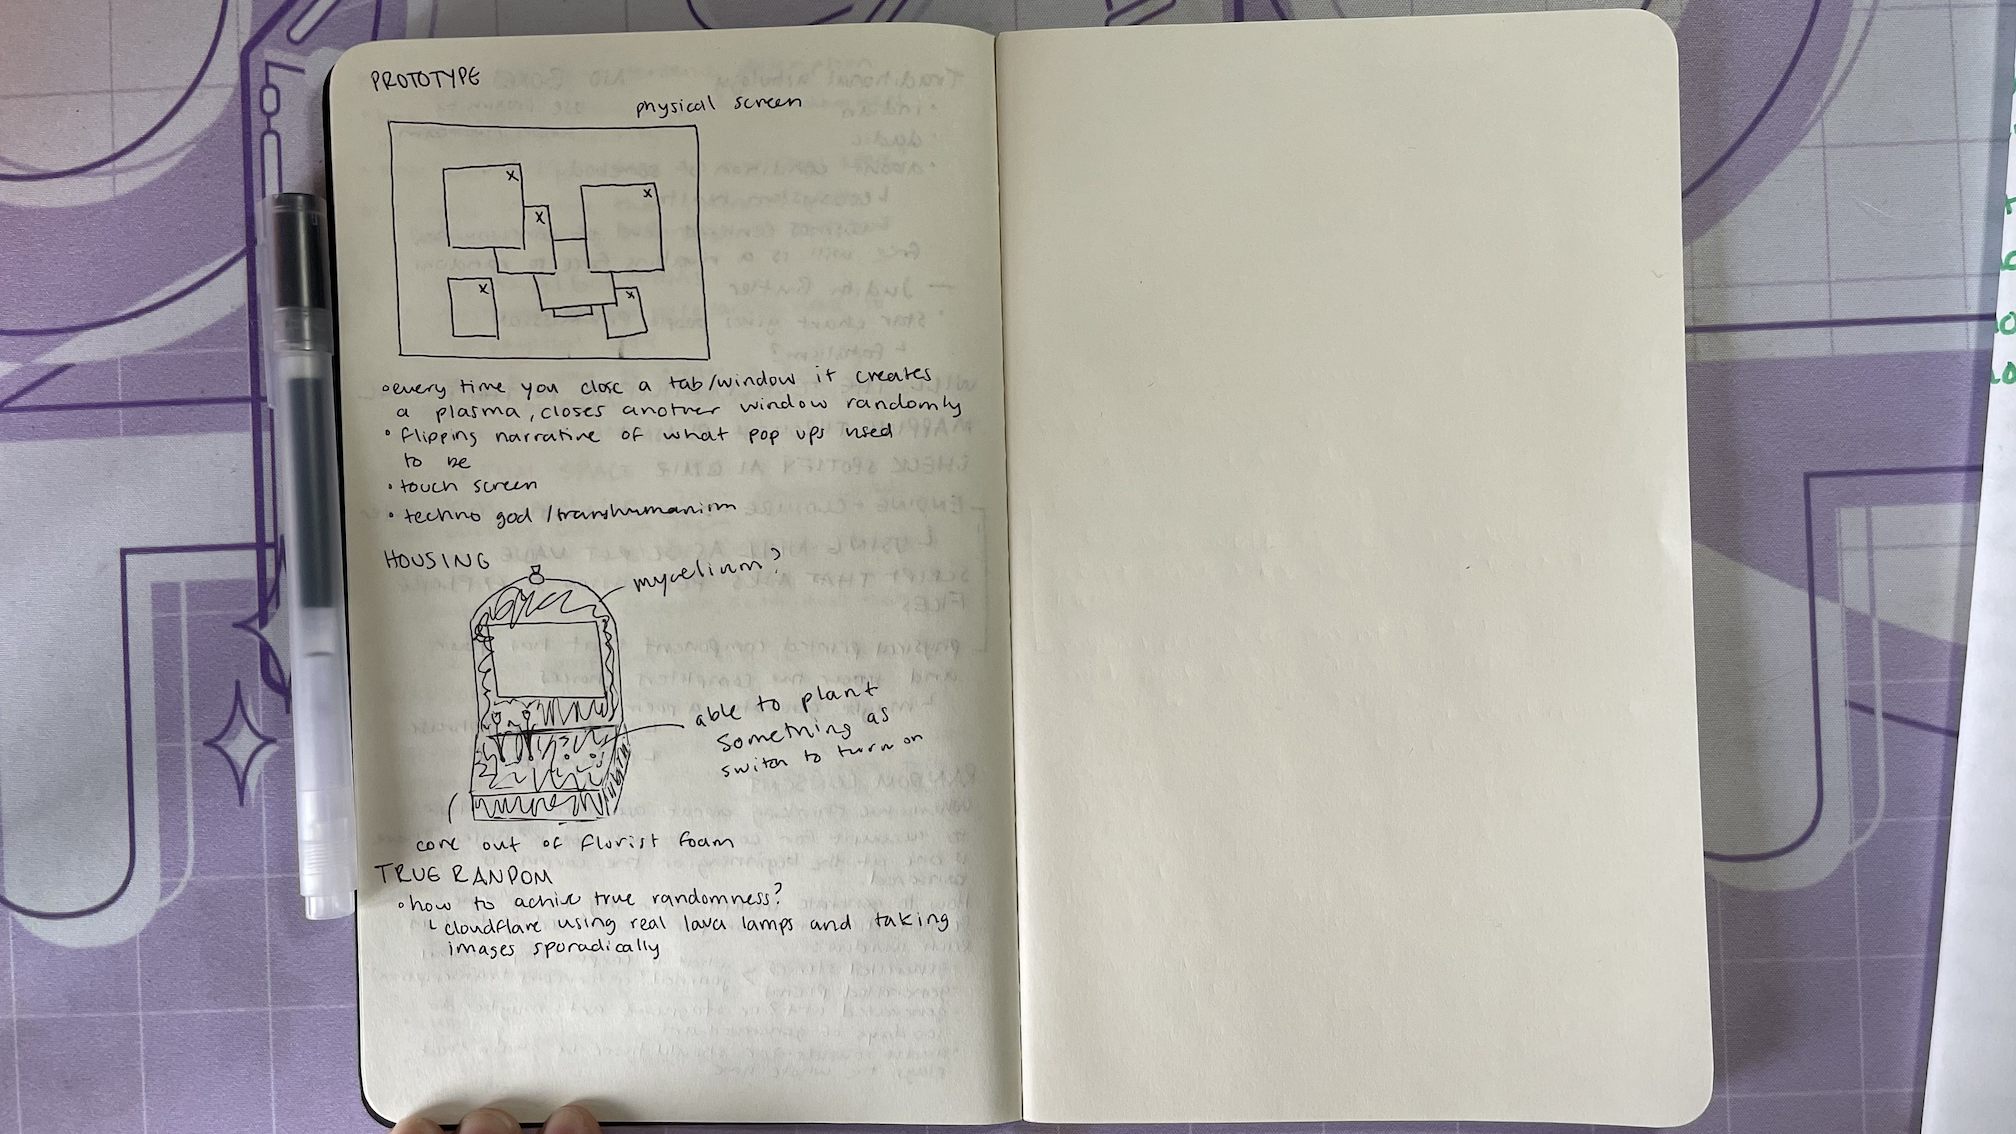 PROTOTYPE
physical screen
x
x
x
x
x
◦every time you close a tab/window it creates
a plasma, closes another window randomly
• flipping narrative of what pop ups used
to be
• touch screen
• techno god /transhumanism
HOUSING
mycelium?
able to plant
something as
switch to turn on
out of florist foam
TRUE RANDOM
◦how to achive true randomness?
└ cloudflare using real lava lamps and taking
images sporadically